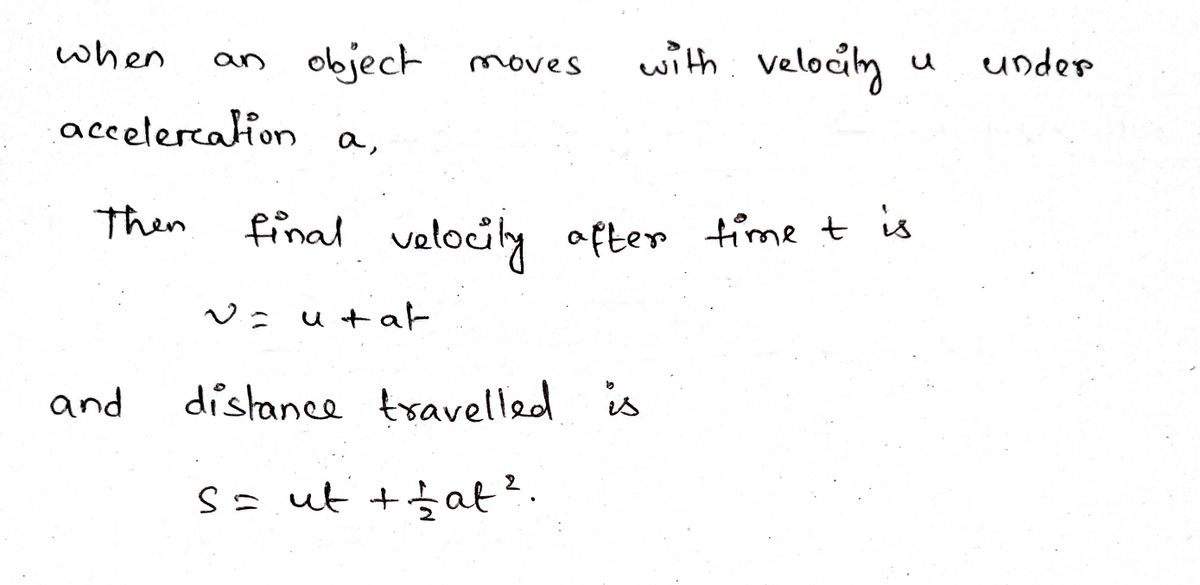 when an object moves with velocity u under
accelercation a,
Then final velocity after time t is
v = u + at
and distance travelled is
s = ut + 1/2 at².